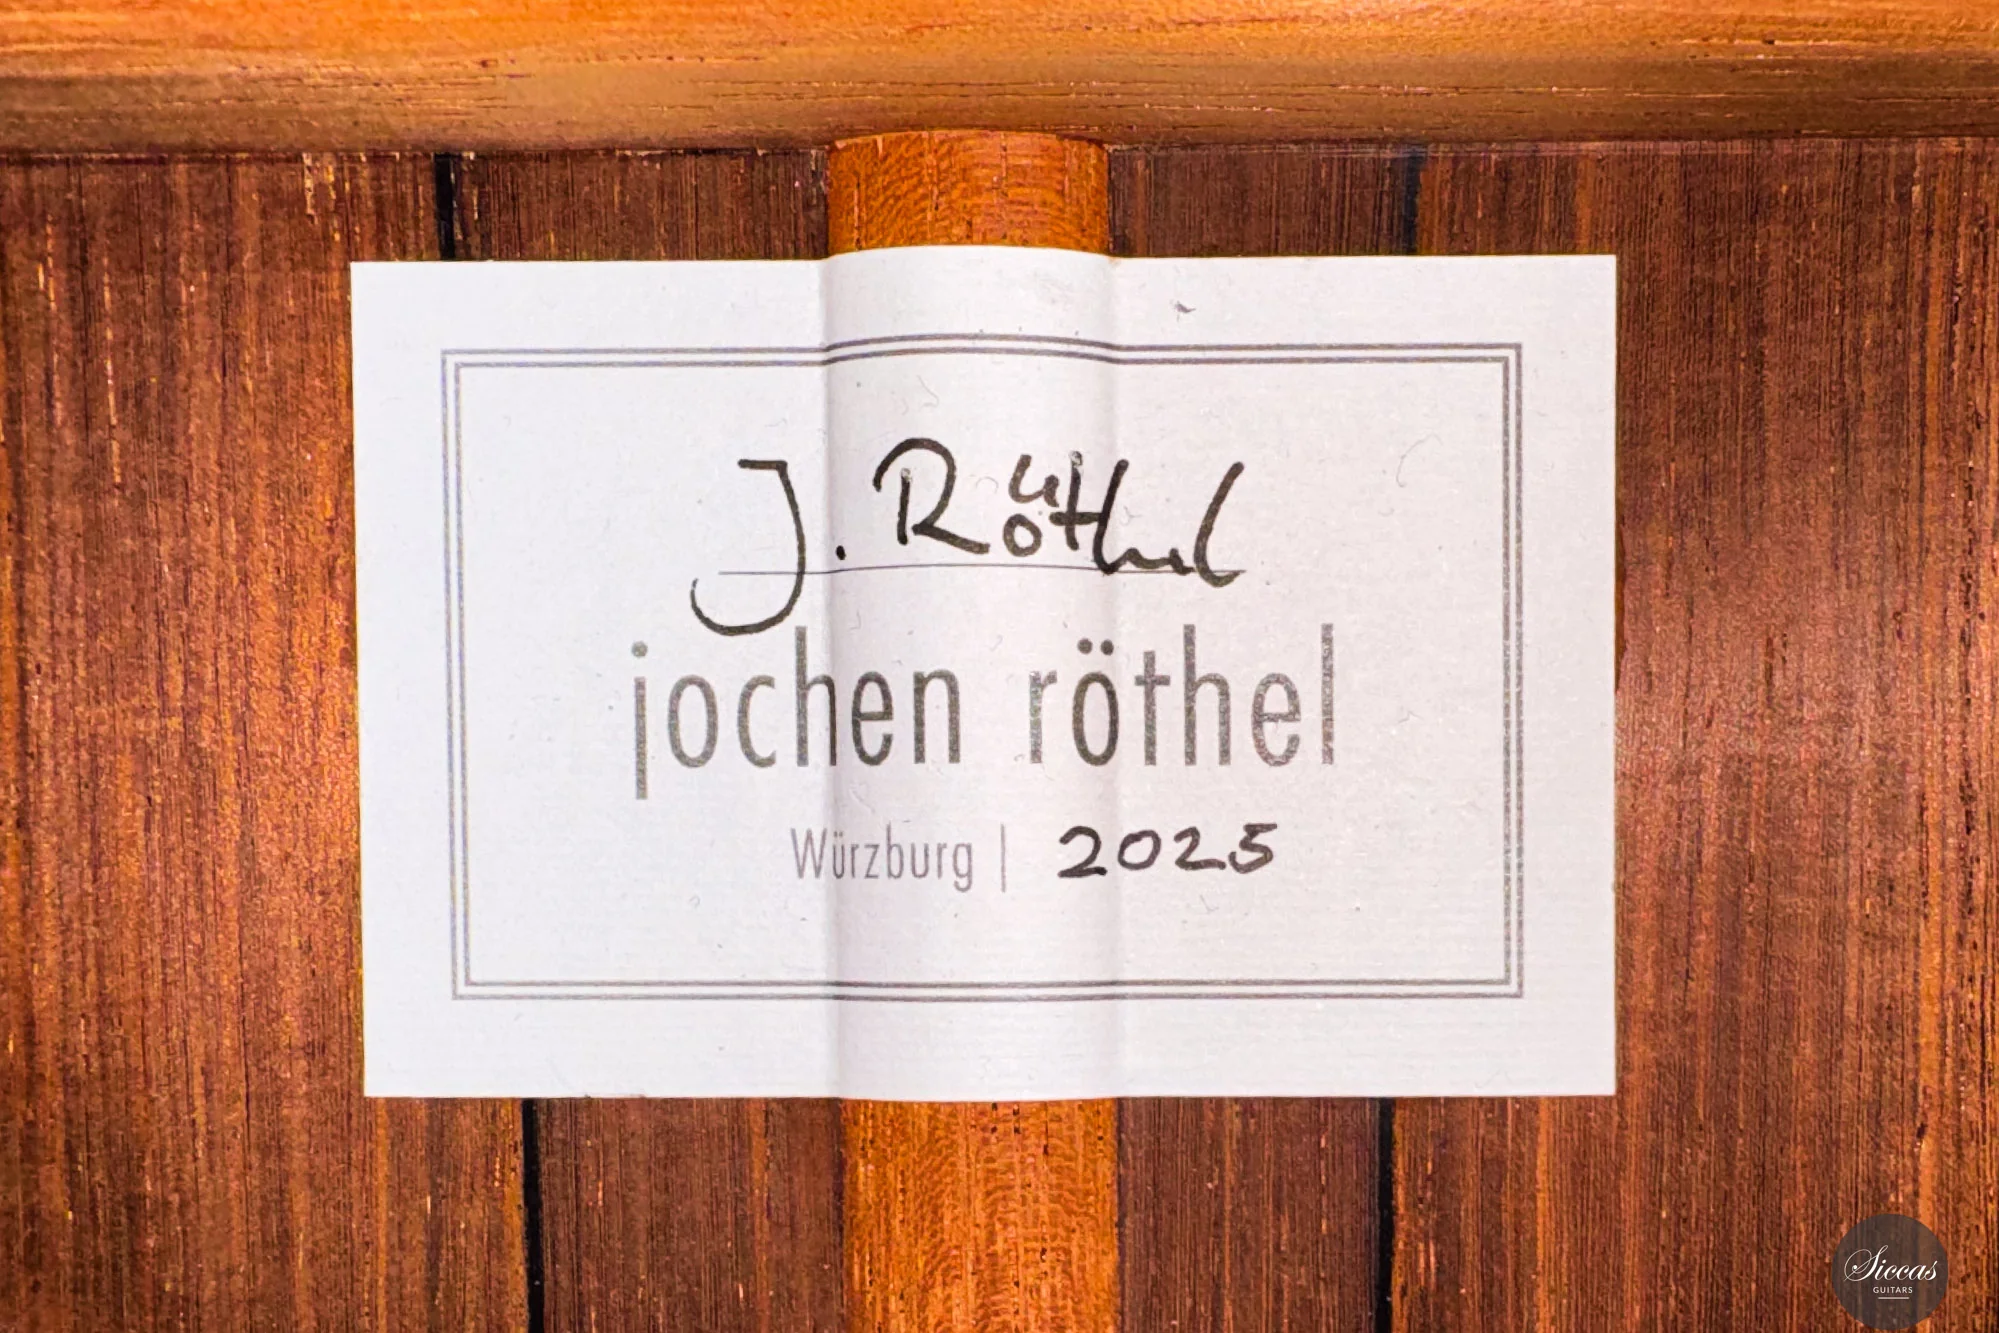 J. Röthel
jochen röthel
Würzburg | 2025
Siccas
GUITARS